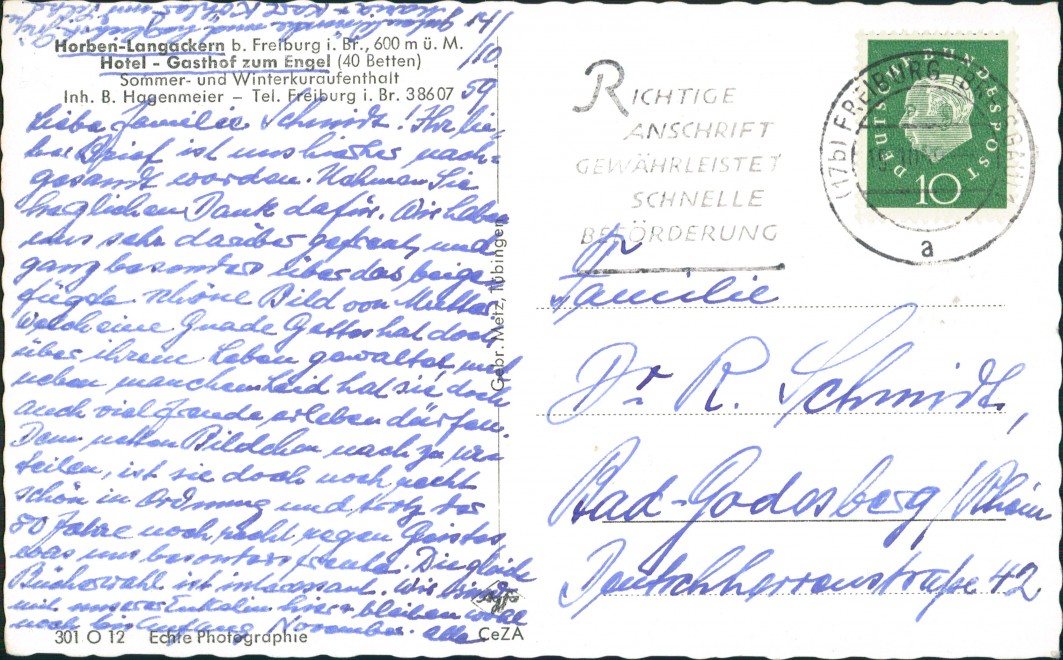 14/
Horben-Langackern b. Freiburg i. Br., 600 m ü. M.
/10.
Hotel - Gasthof zum Engel (40 Betten)
Sommer- und Winterkuraufenthalt
59
Inh. B. Hagenmeier – Tel. Freiburg i. Br. 38607
Liebe Familie Schmidt! Ihr lie-
ber Brief ist uns hierher nach-
gesandt worden. Nehmen Sie
herzlichen Dank dafür. Wir haben
uns sehr darüber gefreut, und
ganz besonders über das beige-
fügte schöne Bild von Mutter
Welch eine Gnade Gottes hat doch
über ihrem Leben gewaltet, und
neben manchem Leid hat sie doch
auch viel Freude erleben dürfen.
Dem netten Bildchen nach zu ur-
teilen, ist sie doch noch recht
schön in Ordnung und trotz der
80 Jahre noch recht regen Geistes
was uns besonders freute. Die gleiche
ist interessant. Wir
mit unserer Enkelin hier bleiben wohl
noch bis Anfang November. Alle
Maria + Karl
301 O 12 Echte Photographie
Agfa
CeZA
Gebr. Metz, Tübingen
RICHTIGE
ANSCHRIFT
GEWÄHRLEISTET
SCHNELLE
BEFÖRDERUNG
(17b) FREIBURG (BREISGAU) 1
a
DEUTSCHE BUNDESPOST
10
Fr
Familie
Dr. R. Schmidt,
Bad-Godesberg/Rhein
Deutschherrenstraße 42